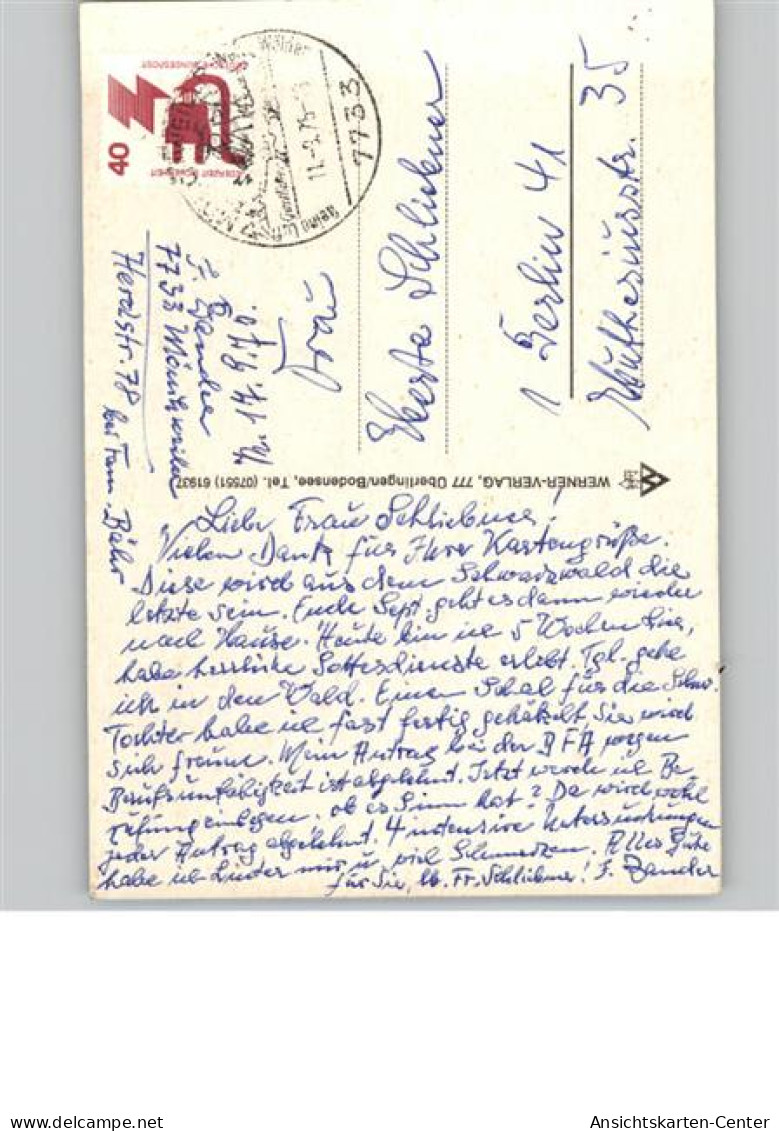 40
DEUTSCHE BUNDESPOST
JEDERZEIT SICHERHEIT
7733
Reine Luft
Wälder
Frau
Schliebner
1 Berlin 41
Muthesiusstr. 35
WERNER-VERLAG, 777 Überlingen/Bodensee, Tel. (07551) 61937
7733 Mönchweiler
Herdstr. 78 bei Fam. Bähr
Liebe Frau Schliebner!
Vielen Dank für Ihre Kartengrüße.
Diese wird aus dem Schwarzwald die
letzte sein. Ende Sept. geht es dann wieder
nach Hause. Heute bin ich 5 Wochen hier,
habe herrliche Gottesdienste erlebt. Tgl. gehe
ich in den Wald. Einen Schal für die Schw.
Tochter habe ich fast fertig gehäkelt. Sie wird
sich freuen. Mein Antrag bei der BFA wegen
Berufsunfähigkeit ist abgelehnt. Jetzt werde ich Be-
rufung einlegen, ob es Sinn hat? Da wird wohl
jeder Antrag abgelehnt. 4 intensive Untersuchungen
habe ich hinter mir u. viel Schmerzen. Alles Gute
für Sie, lb. Fr. Schliebner!
Ansichtskarten-Center.com
Ansichtskarten-Center